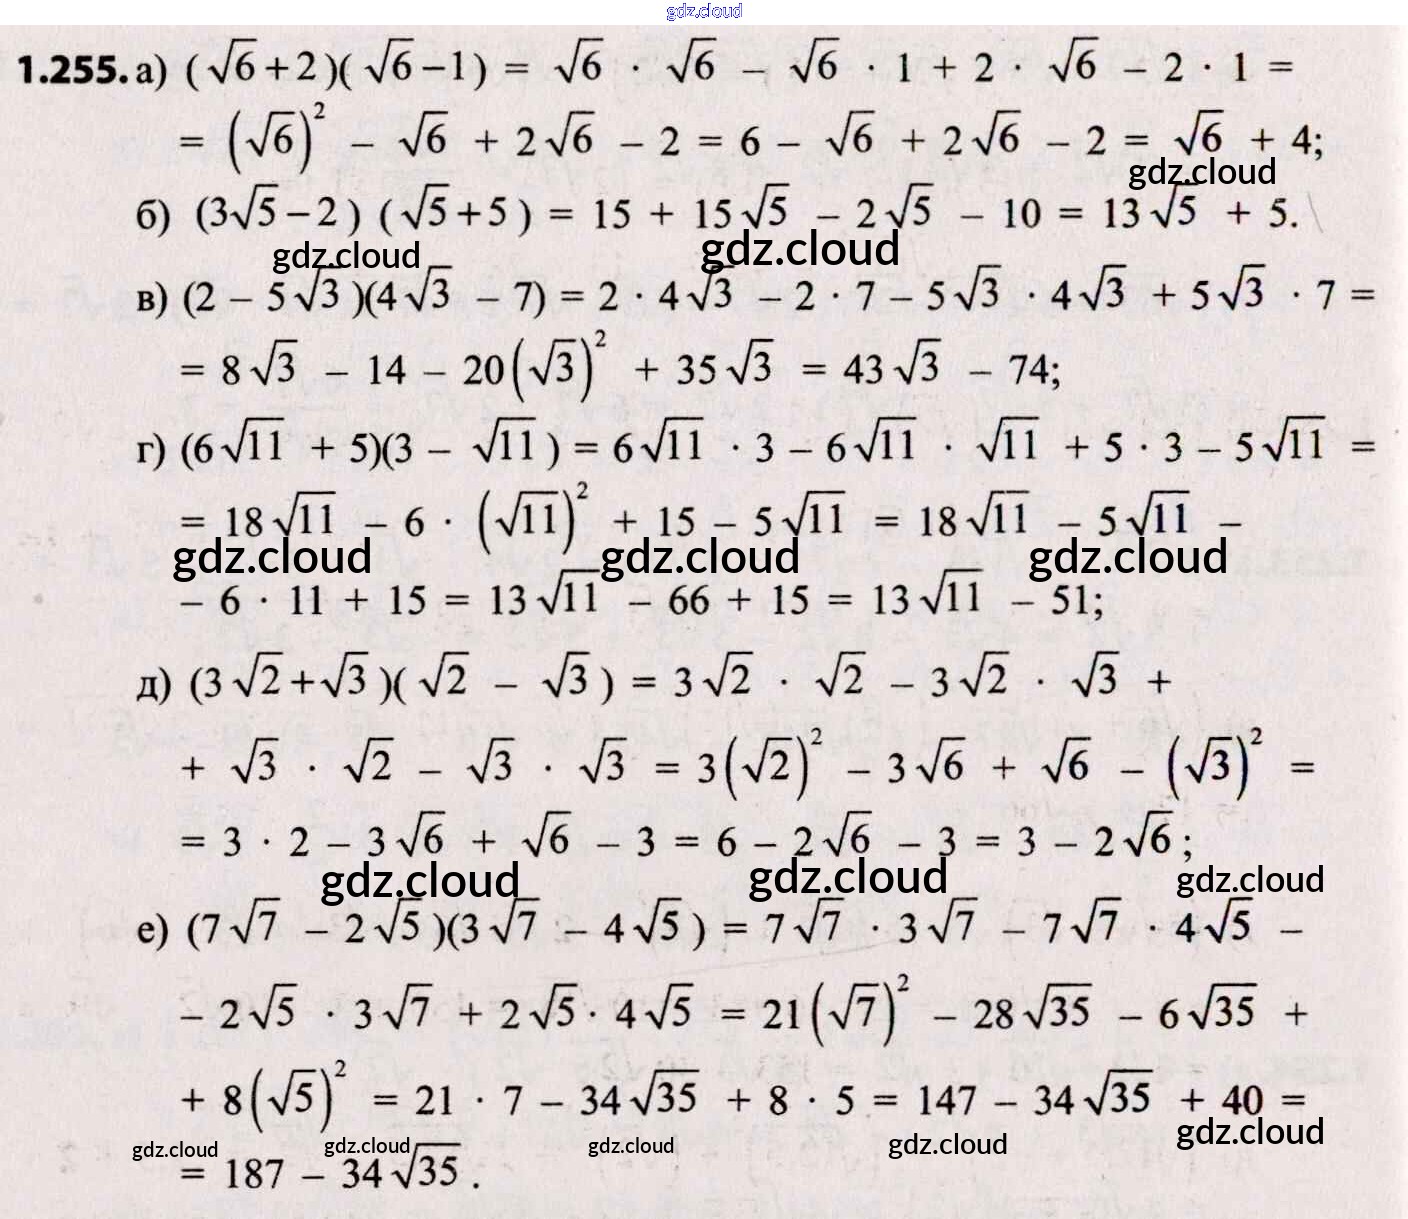 gdz.cloud
1.255. а) (√6+2)(√6−1) = √6 · √6 − √6 · 1 + 2 · √6 − 2 · 1 =
= (√6)² − √6 + 2√6 − 2 = 6 − √6 + 2√6 − 2 = √6 + 4;
gdz.cloud
б) (3√5−2) (√5+5) = 15 + 15√5 − 2√5 − 10 = 13√5 + 5.
gdz.cloud gdz.cloud
в) (2 − 5√3)(4√3 − 7) = 2 · 4√3 − 2 · 7 − 5√3 · 4√3 + 5√3 · 7 =
= 8√3 − 14 − 20(√3)² + 35√3 = 43√3 − 74;
г) (6√11 + 5)(3 − √11) = 6√11 · 3 − 6√11 · √11 + 5 · 3 − 5√11 =
= 18√11 − 6 · (√11)² + 15 − 5√11 = 18√11 − 5√11 −
gdz.cloud gdz.cloud gdz.cloud
− 6 · 11 + 15 = 13√11 − 66 + 15 = 13√11 − 51;
д) (3√2+√3)(√2 − √3) = 3√2 · √2 − 3√2 · √3 +
+ √3 · √2 − √3 · √3 = 3(√2)² − 3√6 + √6 − (√3)² =
= 3 · 2 − 3√6 + √6 − 3 = 6 − 2√6 − 3 = 3 − 2√6;
gdz.cloud gdz.cloud gdz.cloud
е) (7√7 − 2√5)(3√7 − 4√5) = 7√7 · 3√7 − 7√7 · 4√5 −
− 2√5 · 3√7 + 2√5 · 4√5 = 21(√7)² − 28√35 − 6√35 +
+ 8(√5)² = 21 · 7 − 34√35 + 8 · 5 = 147 − 34√35 + 40 =
gdz.cloud gdz.cloud gdz.cloud gdz.cloud gdz.cloud
= 187 − 34√35.